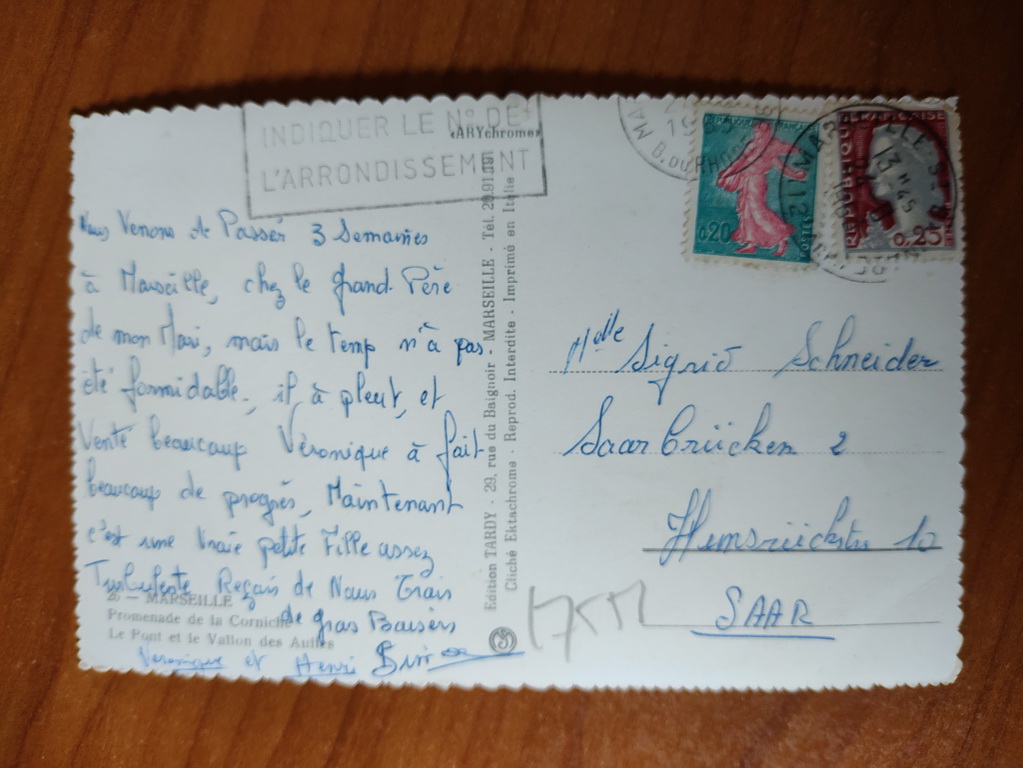 INDIQUER LE N° DE
L'ARRONDISSEMENT
«ARYchrome»
Nous Venons de Passer 3 Semaines
à Marseille, chez le Grand-Père
de mon Mari, mais le temp n'à pas
été formidable., il à pleut, et
Venté beaucoup Véronique à fait
beaucoup de progrès, Maintenant
c'est une Vraie petite Fille assez
Turbulente Reçois de Nous Trois
de gros Baisers
Véronique et Henri
26 — MARSEILLE
Promenade de la Corniche
Le Pont et le Vallon des Auffes
Edition TARDY - 29, rue du Baignoir - MARSEILLE - Tél. 20.91.19
Cliché Ektachrome - Reprod. Interdite - Imprimé en Italie
B. DU RHONE
REPUBLIQUE FRANCAISE
0,20
POSTES
REPUBLIQUE FRANCAISE
0,25
13 H45
Melle Sigrid Schneider
Saarbrücken 2
10
SAAR